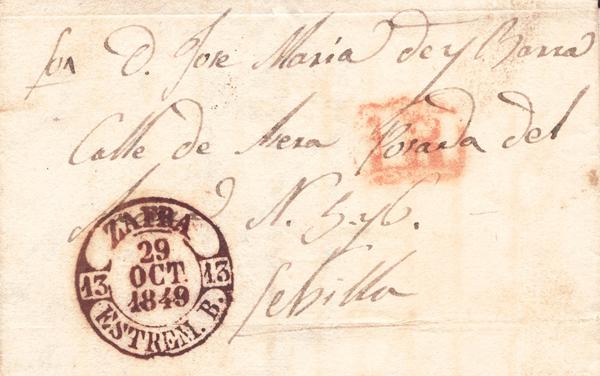 D. Jose Maria de y Barra
Calle de Mesa Posada del
N. 5. y 6.
Sebilla
ZAFRA
29
OCT.
1849
13 13
ESTREM. B.